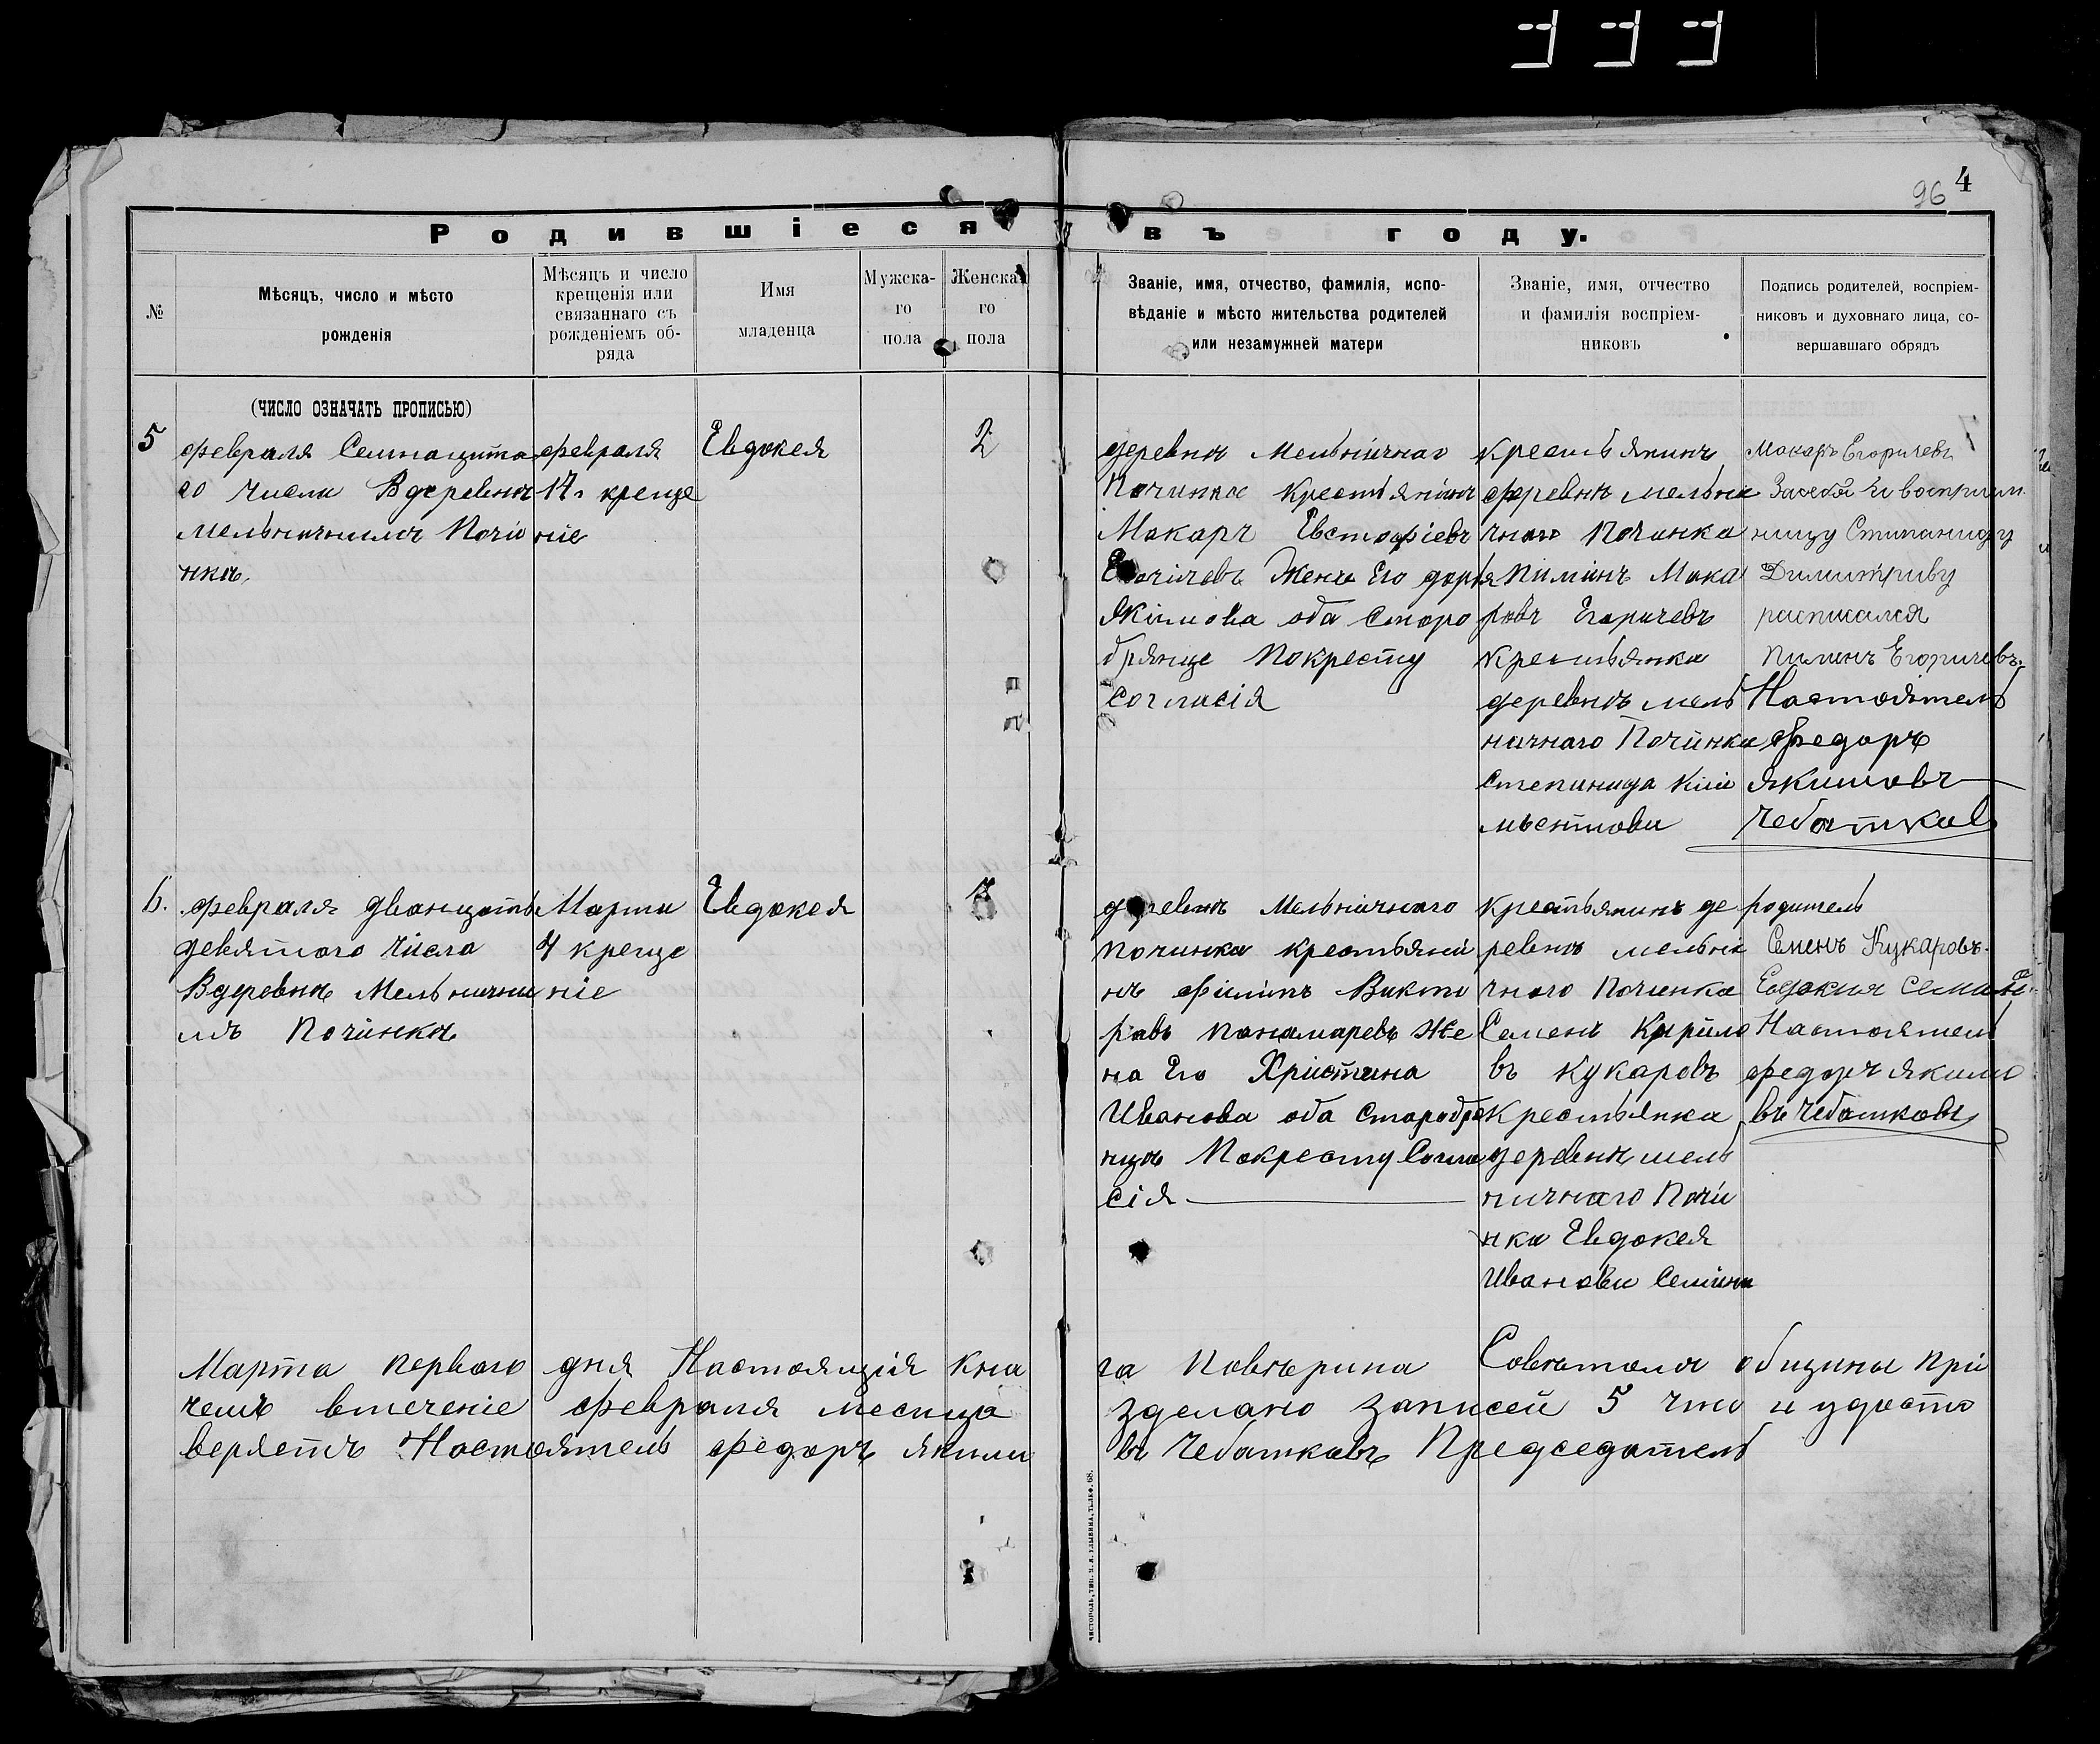 96 4
Родившіеся въ году.
№
Мѣсяцъ, число и мѣсто
рожденія
Мѣсяцъ и число
крещенія или
связаннаго съ
рожденіемъ об-
ряда
Имя
младенца
Мужска-
го
пола
Женска
го
пола
Званіе, имя, отчество, фамилія, испо-
вѣданіе и мѣсто жительства родителей
или незамужней матери
Званіе, имя, отчество
и фамилія воспріем-
никовъ
Подпись родителей, воспріем-
никовъ и духовнаго лица, со-
вершавшаго обрядъ
(ЧИСЛО ОЗНАЧАТЬ ПРОПИСЬЮ)
5
февраля Семнацита
го числа Вдеревнѣ
мельничнымъ Почи
нкѣ,
февраля
17. креще
ніе
Евдокея
2
деревни Мельничнаго
Починка крестьянинъ
Макаръ Евстафіевъ
Егоричевъ Жена Его дарья
Якимова оба Старо
брянце Покресту
согласія
крестьянинъ
деревнѣ мельни
чнаго Починка
Пиминъ Мака
ровъ Егоричевъ
крестьянка
деревнѣ мель
ничнаго Починка
Степанида Кли
мѣнтова
Макаръ Егоричевъ
Засебя И восприим
ницу Стипаниду
Димитриву
расписался
Пиминъ Егоричевъ.
Настоятель
федоръ
Якимовъ
Чебатков
6.
февраля дванцать
девятого числа
Вдеревнѣ Мельнични
мъ Починкѣ
Марта
4 креще
ніе
Евдокея
деревнѣ Мельничнаго
починка крестьяни
нъ филипъ Викто
ровъ понамаревъ Же
на Его Христина
Иванова оба Старобря
нцѣ Покресту Согла
сія
крестьянинъ де
ревнѣ мельни
чного Починка
Семенъ Кирило
въ Кукаровъ
Крестьянка
деревнѣ мель
ничнаго Почи
нка Евдокея
Иванова Семина
родитель
Семенъ Кукаровъ.
Евдокия Семина
Настоятель
федоръ якимо
въ Чебатковъ
Марта первого дня Настоящія кни га Повѣрина Совѣтомъ общины при
чемъ втеченіе февраля месица зделано записей 5 что и удосто
веряетъ Настоятель федоръ якимо въ Чебатковъ Председатель
ЧИСТОПОЛЬ, ТИП.